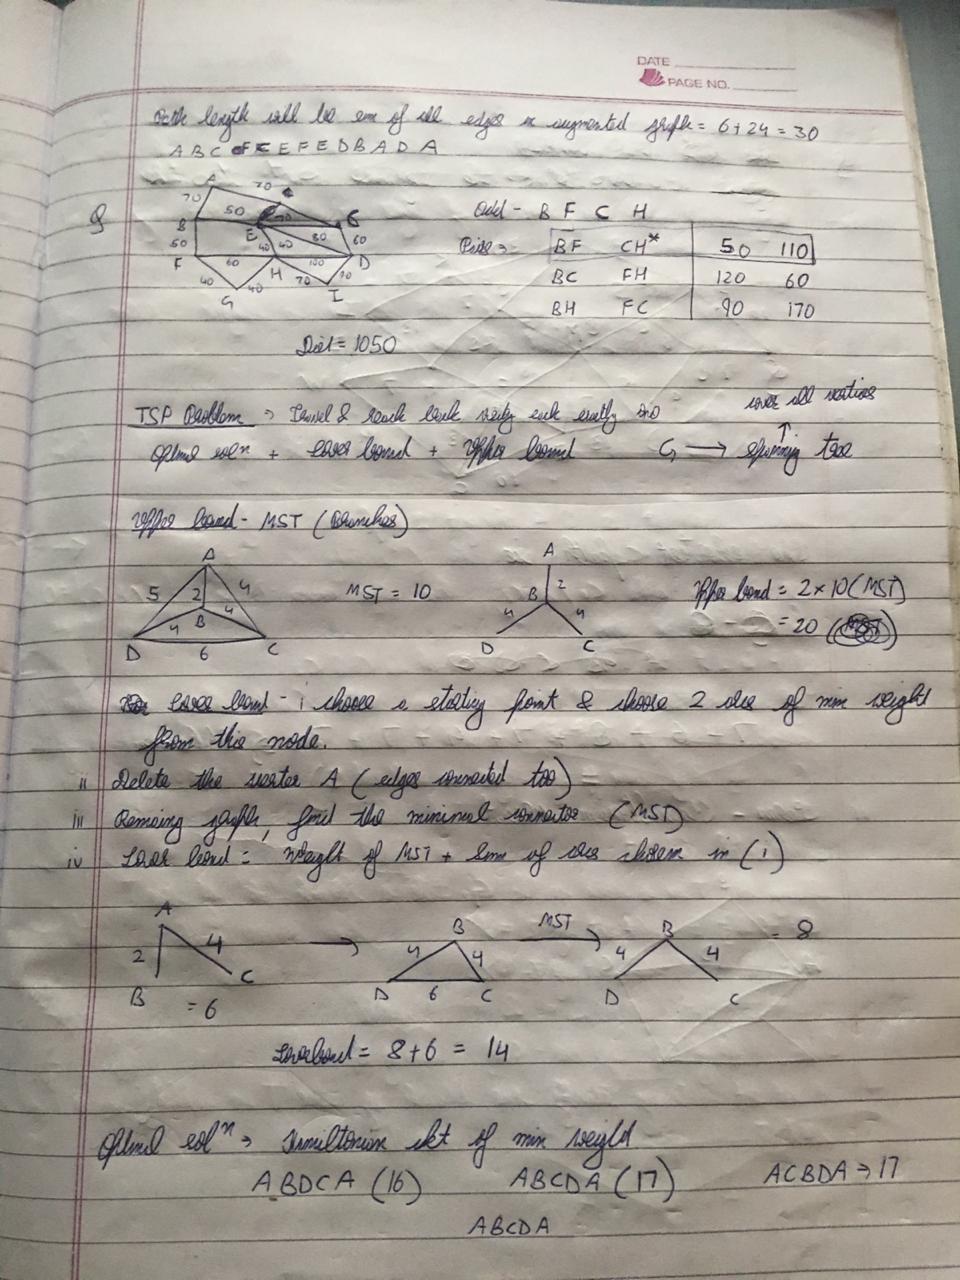 DATE
PAGE NO.
length will be sum of all edges in augmented graph = 6 + 24 = 30
A B C F C E F E D B A D A
Q
A 70 70 C
B 50 70 G
50 E 80 60
F 60 40 40 100 D
40 G 40 H 70 I 70
Odd - B F C H
Pairs → BF CH* 50 110
BC FH 120 60
BH FC 90 170
Dist = 1050
TSP Problem → Travel & reach back each exactly
Optimal solⁿ + Lower bound + Upper bound
G → spanning tree
↑
cover all vertices
Upper bound - MST (Branches)
A
5 2 4
4 B 4
D 6 C
MST = 10
A
B 2
4 4
D C
Upper bound = 2 × 10 (MST)
= 20
Lower bound - i choose a starting point & choose 2 arcs of min weight
from this node.
ii Delete the vertex A (edges connected too)
iii Remaing graph, find the minimal connector (MST)
iv Lower bound = Weight of MST + Sum of arcs chosen in (i)
A
2 4
B C
= 6
→
B
4 4
D 6 C
MST →
B
4 4
D C
= 8
Lower bound = 8 + 6 = 14
Optimal solⁿ → Hamiltonian ckt of min weight
ABDCA (16) ABCDA (17) ACBDA → 17
ABCDA